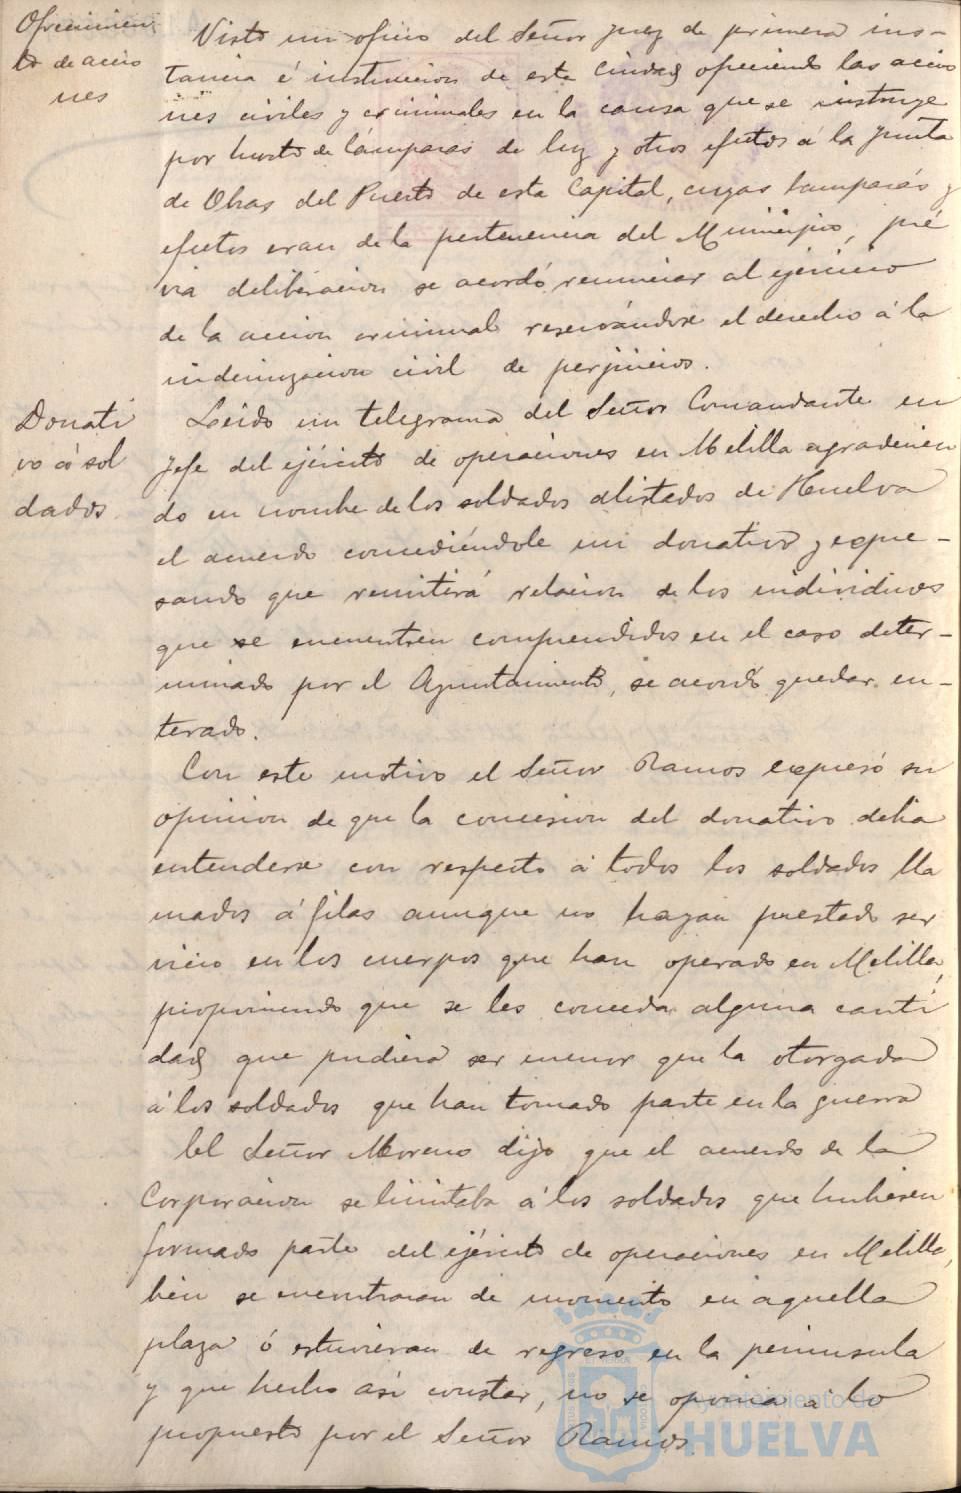 Ofrecimien
to de accio
nes
Visto un oficio del Señor Juez de primera ins-
tancia é instruccion de esta Ciudad ofreciendo las accio
nes civiles y criminales en la causa que se instruye
por hurto de lámparas de luz y otros efectos á la Junta
de Obras del Puerto de esta Capital, cuyas lamparas y
efectos eran de la pertenencia del Municipio, pré
via deliberacion se acordó renunciar al ejercicio
de la accion criminal reservándose el derecho á la
indemnizacion civil de perjuicios.
Donati
vo á sol
dados.
Leido un telegrama del Señor Comandante en
Jefe del ejército de operaciones en Melilla agradecien
do en nombre de los soldados alistados de Huelva
el acuerdo concediéndole un donativo y expre-
sando que remitirá relacion de los individuos
que se encuentren comprendidos en el caso deter-
minado por el Ayuntamiento, se acordó quedar en-
terado.
Con este motivo el Señor Ramos expresó su
opinion de que la concesion del donativo debia
entenderse con respecto á todos los soldados lla
mados á filas aunque no hayan prestado ser
vicio en los cuerpos que han operado en Melilla,
proponiendo que se les conceda alguna canti
dad que pudiera ser menor que la otorgada
á los soldados que han tomado parte en la guerra
El Señor Moreno dijo que el acuerdo de la
Corporacion se limitaba á los soldados que hubiesen
formado parte del ejército de operaciones en Melilla,
bien se encontraran de momento en aquella
plaza ó estuvieran de regreso en la peninsula
y que hecho asi constar, no se oponia á lo
propuesto por el Señor Ramos.
Ayuntamiento de
HUELVA